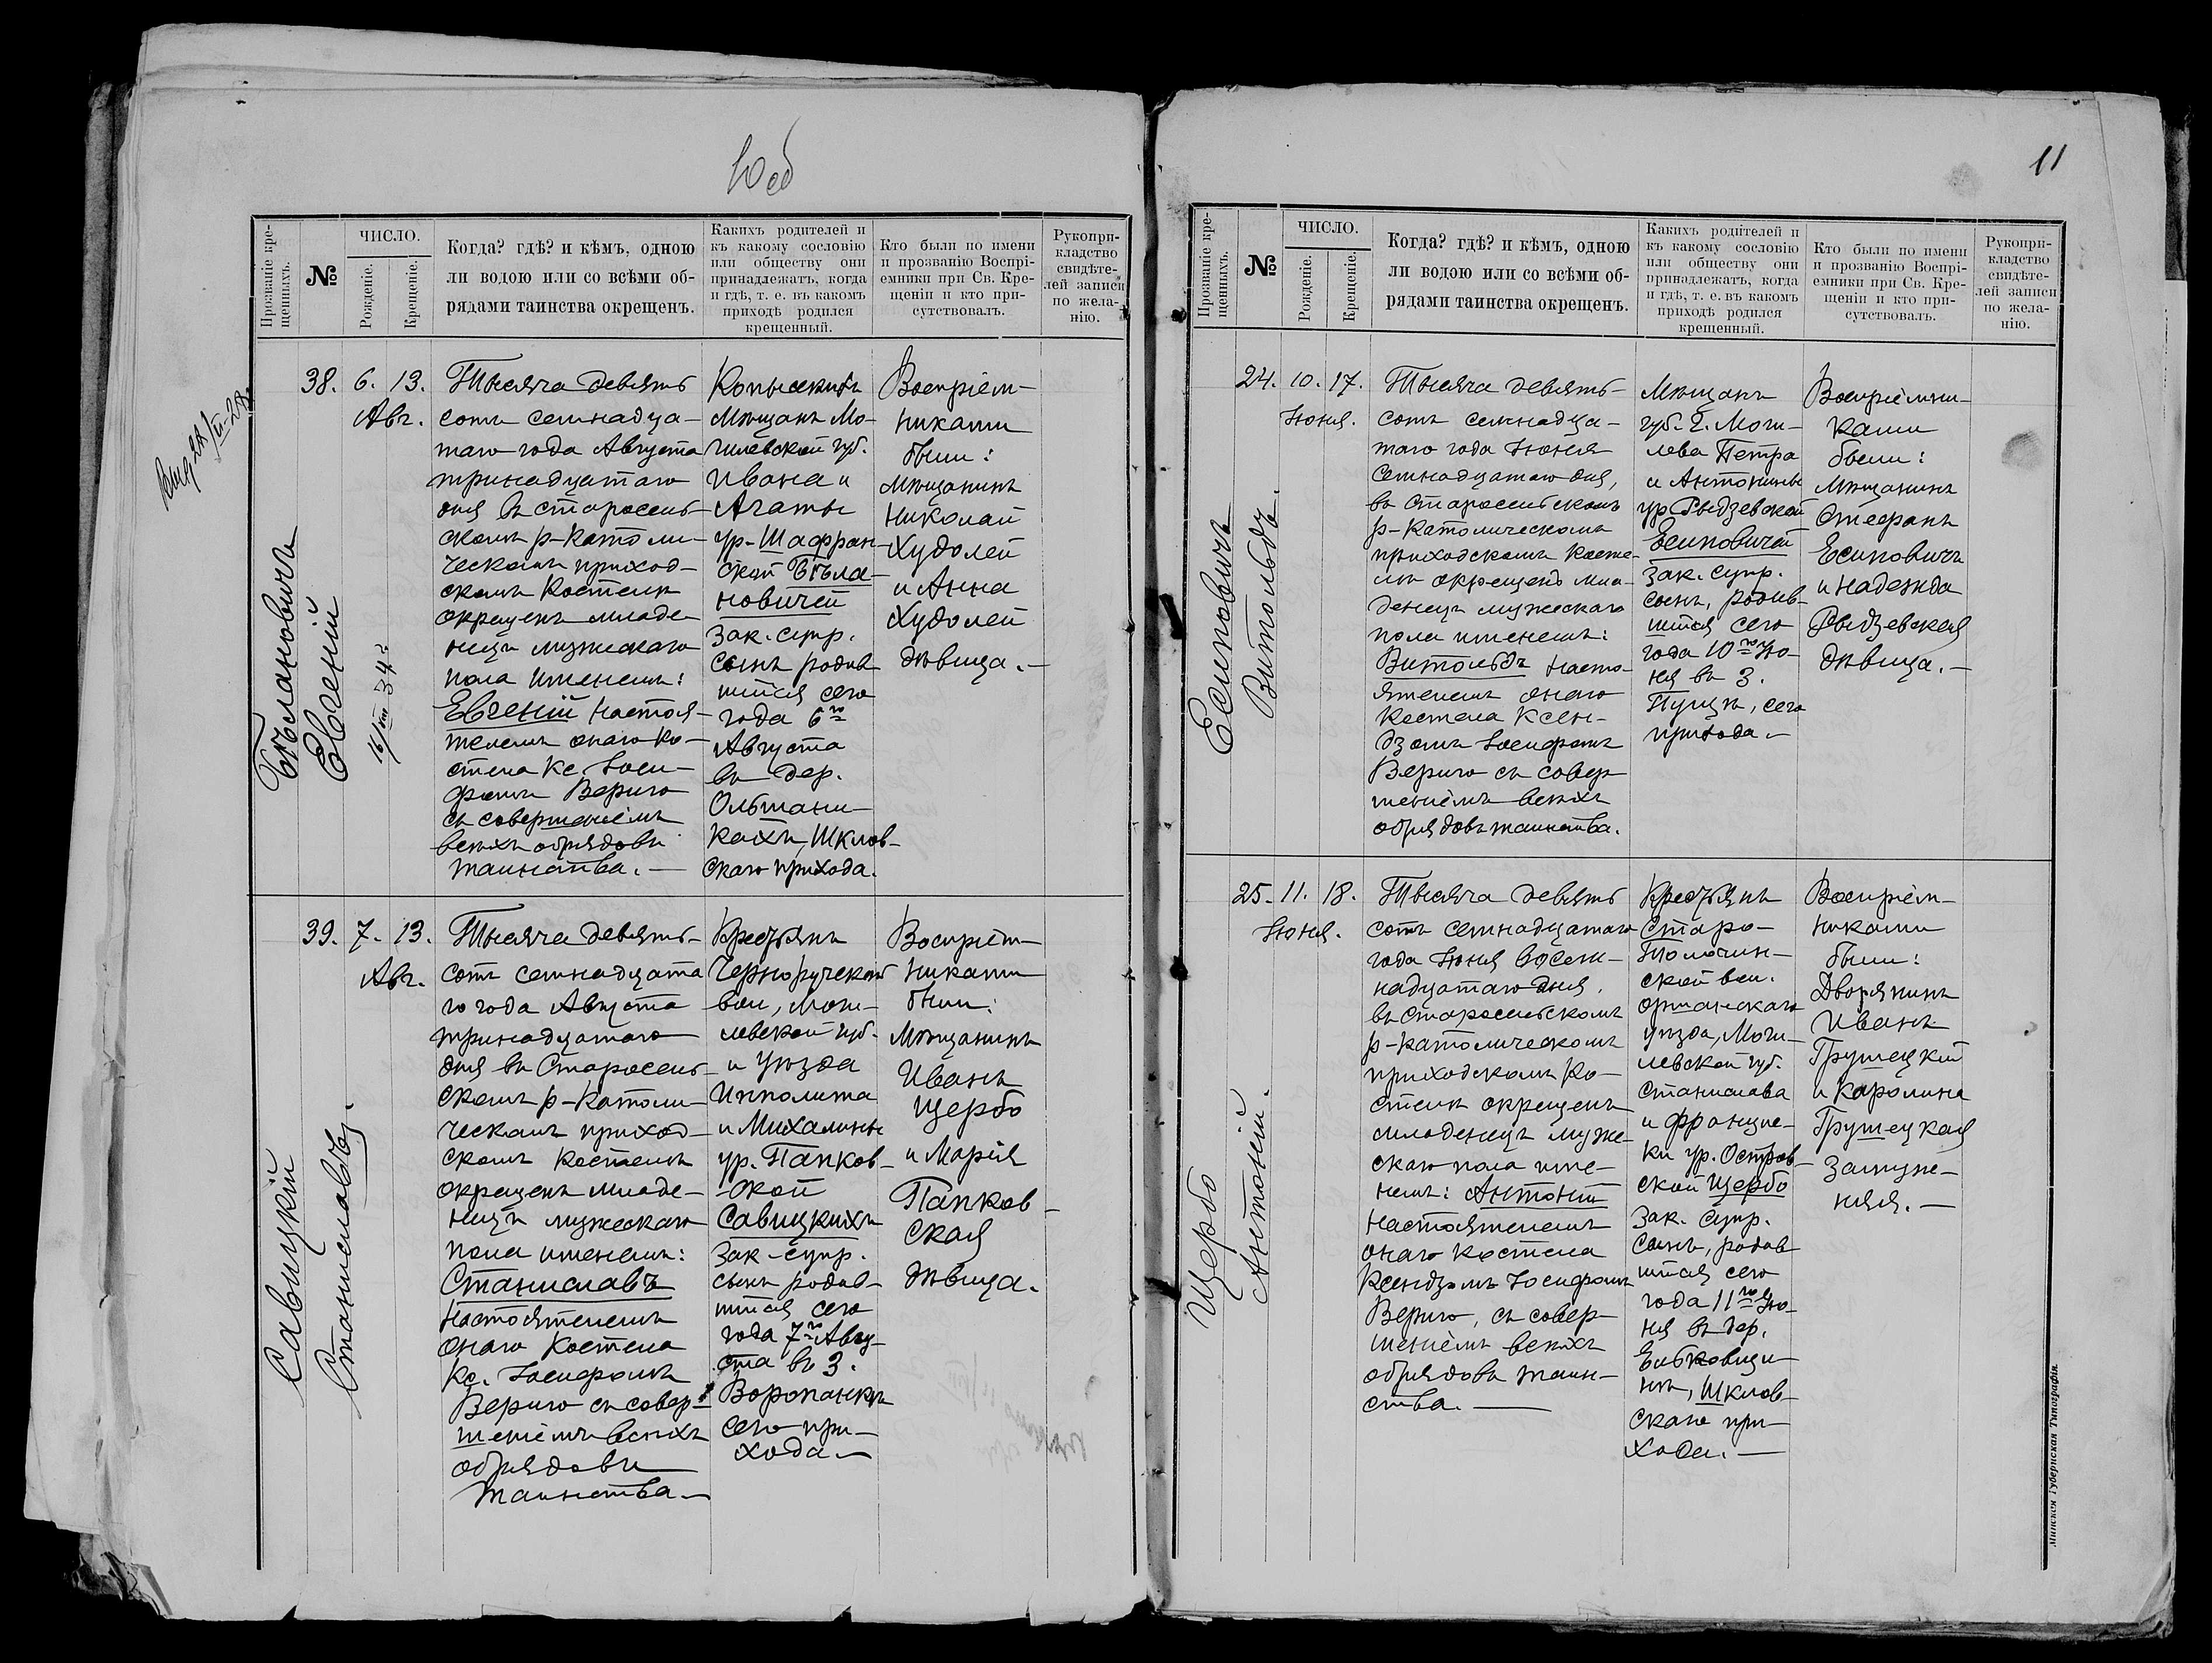 10об
Прозваніе кре-
щенныхъ.
№
ЧИСЛО.
Рожденіе.
Крещеніе.
Когда? гдѣ? и кѣмъ, одною
ли водою или со всѣми об-
рядами таинства окрещенъ.
Какихъ родителей и
къ какому сословію
или обществу они
принадлежатъ, когда
и гдѣ, т. е. въ какомъ
приходѣ родился
крещенный.
Кто были по имени
и прозванію Воспрі-
емники при Св. Кре-
щеніи и кто при-
сутствовалъ.
Рукопри-
кладство
свидѣте-
лей записи
по жела-
нію.
Бѣлановичъ
Евгеній
16/VIII 34 г.
38. 6. 13.
Авг.
Тысяча девять
сотъ семнадца-
таго года Августа
тринадцатаго
дня въ старосель-
скомъ р-католи-
ческомъ приход-
скомъ костелѣ
окрещенъ младе-
нецъ мужескаго
пола именемъ:
Евгеній настоя-
телемъ онаго ко-
стела Кс. Іоси-
фомъ Вериго
съ совершеніемъ
всѣхъ обрядовъ
таинства. —
Копысскихъ
Мѣщанъ Мо-
гилевской губ.
Ивана и
Агаты
ур. Шафран-
ской Бѣла-
новичей
зак. супр.
сынъ родив-
шійся сего
года 6го
Августа
въ дер.
Ольшани-
кахъ, Шклов-
скаго прихода.
Воспріем-
никами
были:
Мѣщанинъ
Николай
Худолей
и Анна
Худолей
дѣвица. —
Савицкій
Станиславъ.
39. 7. 13.
Авг.
Тысяча девять-
сотъ семнадцата
го года Августа
тринадцатаго
дня въ Старосель-
скомъ р-католи-
ческомъ приход-
скомъ костелѣ
окрещенъ младе-
нецъ мужескаго
пола именемъ:
Станиславъ
настоятелемъ
онаго костела
Кс. Іосифомъ
Вериго съ совер-
шеніемъ всѣхъ
обрядовъ
таинства —
Крестьянъ
Чернорученской
вол., Моги-
левской губ.
и уѣзда
Ипполита
и Михалины
ур. Папков-
ской
Савицкихъ
зак. супр.
сынъ родив-
шійся сего
года 7го Авгу-
ста въ з.
Воропанкѣ
сего при-
хода. —
Воспріем-
никами
были:
Мѣщанинъ
Иванъ
Щербо
и Марія
Папков-
ская
дѣвица.
11
Прозваніе кре-
щенныхъ.
№
ЧИСЛО.
Рожденіе.
Крещеніе.
Когда? гдѣ? и кѣмъ, одною
ли водою или со всѣми об-
рядами таинства окрещенъ.
Какихъ родителей и
къ какому сословію
или обществу они
принадлежатъ, когда
и гдѣ, т. е. въ какомъ
приходѣ родился
крещенный.
Кто были по имени
и прозванію Воспрі-
емники при Св. Кре-
щеніи и кто при-
сутствовалъ.
Рукопри-
кладство
свидѣте-
лей записи
по жела-
нію.
Есиповичъ
Витольдъ.
24. 10. 17.
Іюня.
Тысяча девять-
сотъ семнадца-
таго года Іюня
семнадцатаго дня,
въ Старосельскомъ
р-католическомъ
приходскомъ косте-
лѣ окрещенъ мла-
денецъ мужескаго
пола именемъ:
Витольдъ насто-
ятелемъ онаго
костела ксен-
дзомъ Іосифомъ
Вериго съ совер
шеніемъ всѣхъ
обрядовъ таинства.
Мѣщанъ
губ. г. Моги-
лева Петра
и Антонины
ур Рыдзевской
Есиповичей
зак. супр.
сынъ, родив-
шійся сего
года 10го Ію-
ня въ з.
Пуща, сего
прихода. —
Воспріемни-
ками
были:
Мѣщанинъ
Стефанъ
Есиповичъ
и Надежда
Рыдзевская
дѣвица. —
Щербо
Антоній.
25. 11. 18.
Іюня.
Тысяча девять
сотъ семнадцатаго
года Іюня восем-
надцатаго дня,
въ Старосельскомъ
р-католическомъ
приходскомъ ко-
стелѣ окрещенъ
младенецъ муже-
скаго пола име-
немъ: Антоній
настоятелемъ
онаго костела
Ксендзомъ Іосифомъ
Вериго, съ совер-
шеніемъ всѣхъ
обрядовъ таин-
ства. —
Крестьянъ
Старо-
Толочин-
ской вол.
Оршанскаго
уѣзда, Моги-
левской губ.
Станислава
и Францис-
ки ур. Остров-
ской Щербо
зак. супр.
сынъ, родив-
шійся сего
года 11го Ію-
ня въ дер.
Ельковщи-
нѣ, Шклов-
скаго при-
хода. —
Воспріем-
никами
были:
Дворянинъ
Иванъ
Грушецкій
и Каролина
Грушецкая
замуж-
няя. —
Минская Губернская Типографія.